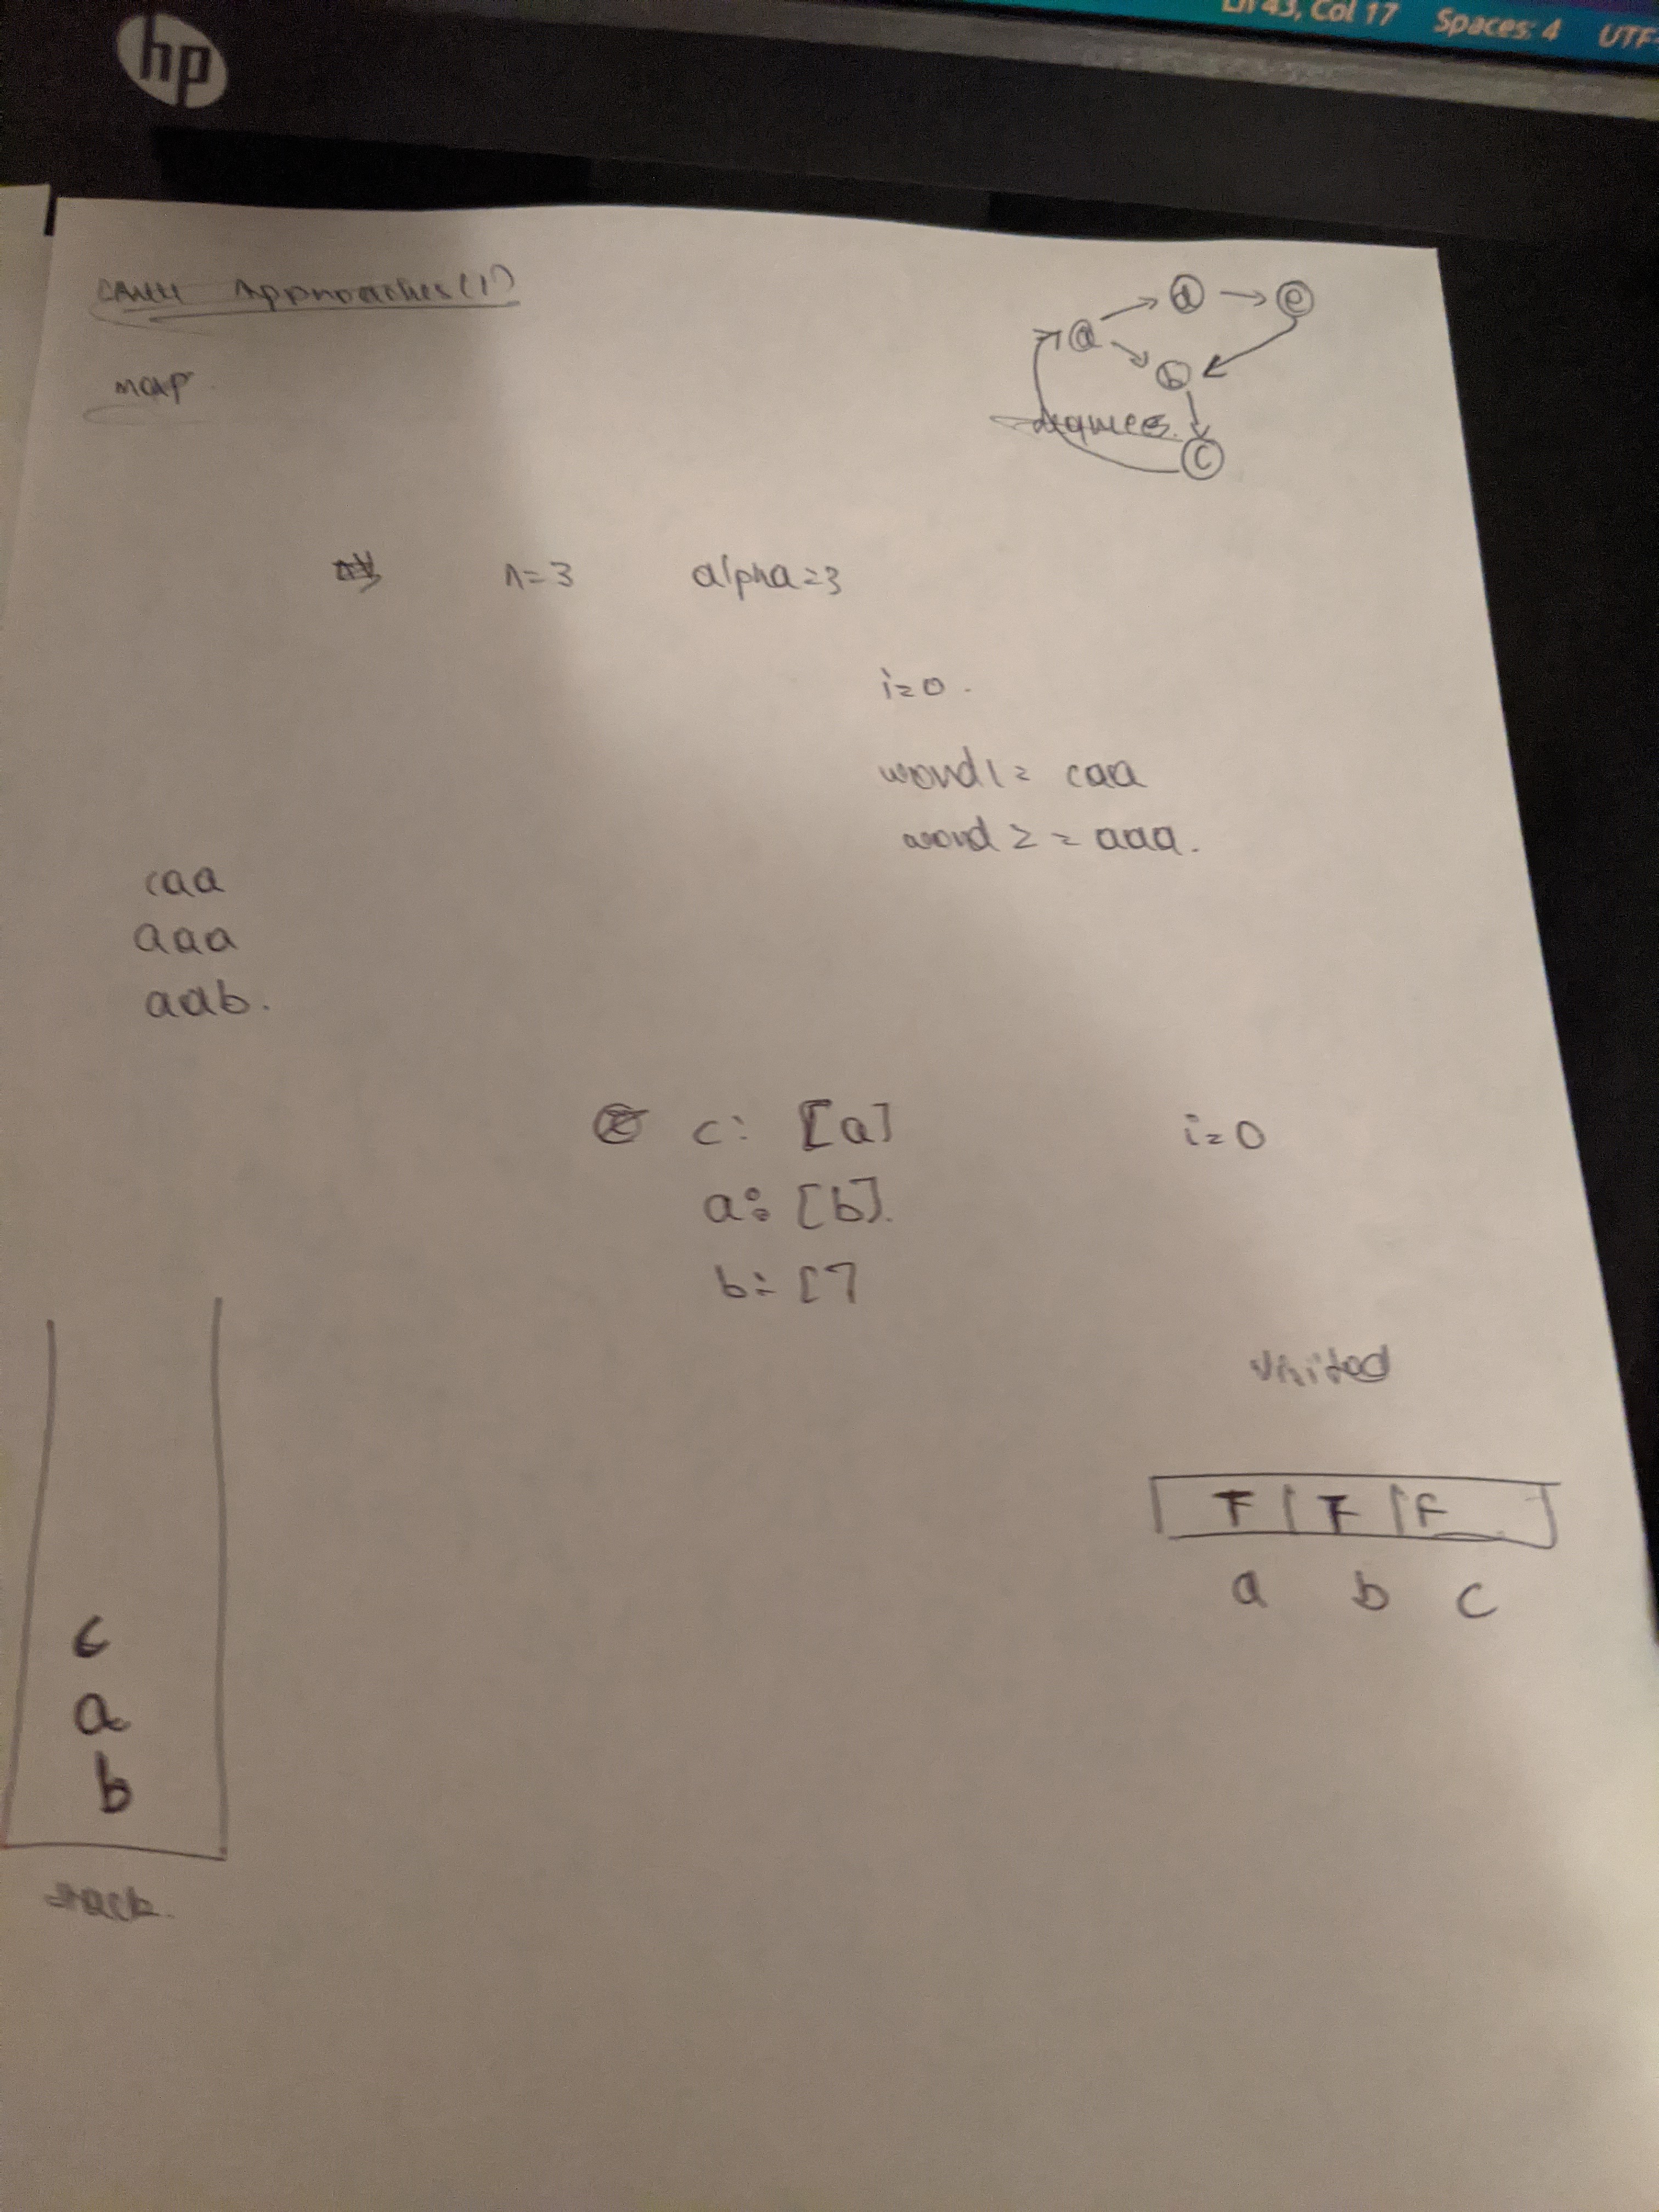 Ln 43, Col 17 Spaces: 4 UTF-
hp
Approaches(1)
map.
a d e
b
c
n=3 alpha=3
i=0.
word1= caa
word2= aaa.
caa
aaa
aab.
c: [a] i=0
a: [b].
b: []
visited
F
a b c
c
a
b
stack.